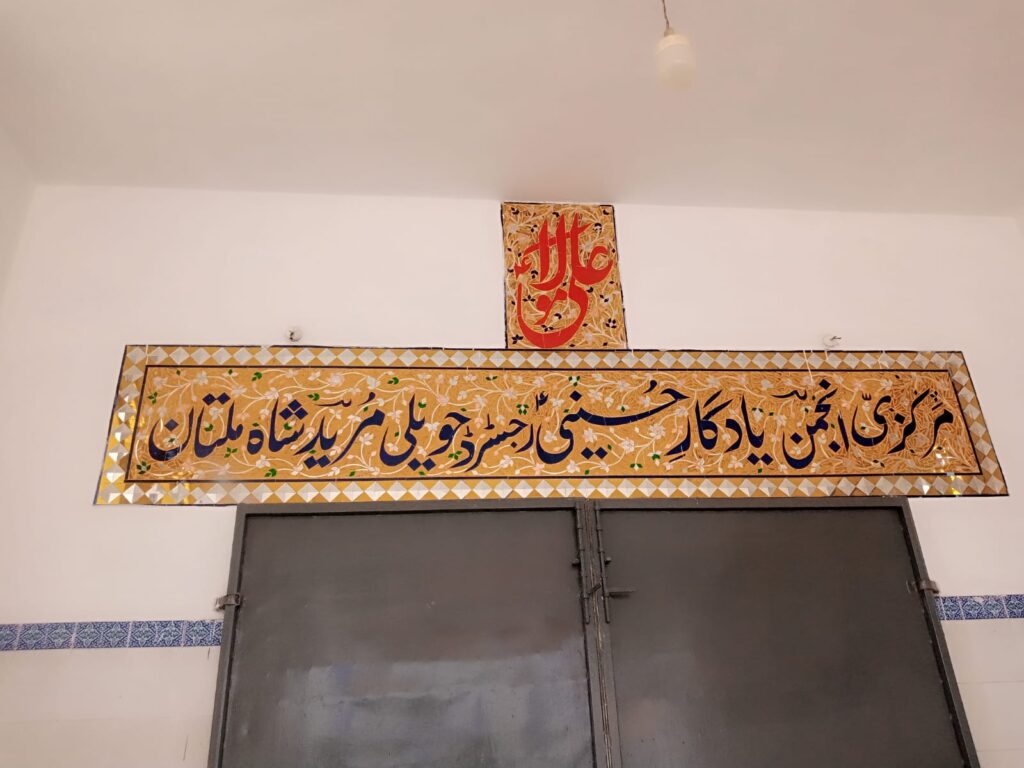 مولا علیؑ
مرکزی انجمن یادگارِ حُسینیؑ رجسٹرڈ حویلی مُرید شاہ ملتان